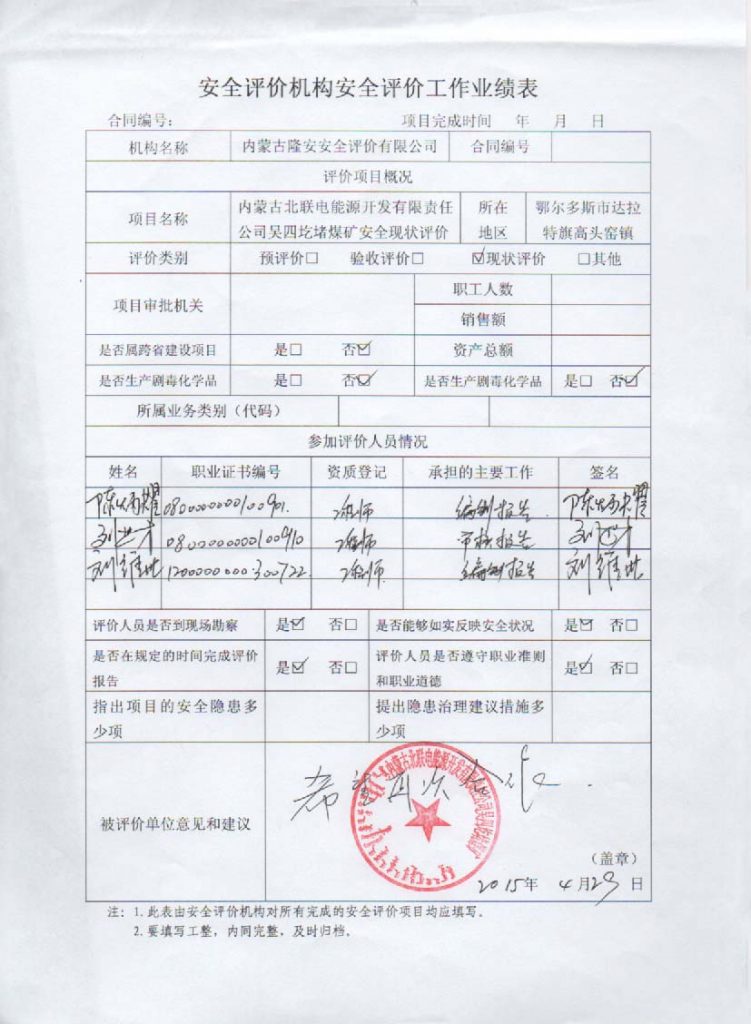 安全评价机构安全评价工作业绩表
合同编号： 项目完成时间 年 月 日
机构名称 内蒙古隆安安全评价有限公司 合同编号
评价项目概况
项目名称 内蒙古北联电能源开发有限责任公司吴四圪堵煤矿安全现状评价 所在地区 鄂尔多斯市达拉特旗高头窑镇
评价类别 预评价□ 验收评价□ ☑现状评价 □其他
项目审批机关 职工人数
销售额
是否属跨省建设项目 是□ 否☑ 资产总额
是否生产剧毒化学品 是□ 否☑ 是否生产剧毒化学品 是□ 否☑
所属业务类别（代码）
参加评价人员情况
姓名 职业证书编号 资质登记 承担的主要工作 签名
编制报告
审核报告
刘维 1200000000300722 编制报告 刘维
评价人员是否到现场勘察 是☑ 否□ 是否能够如实反映安全状况 是☑ 否□
是否在规定的时间完成评价报告 是☑ 否□ 评价人员是否遵守职业准则和职业道德 是☑ 否□
指出项目的安全隐患多少项 提出隐患治理建议措施多少项
被评价单位意见和建议 希望再次合作
（盖章）
2015年 4月29日
注：1.此表由安全评价机构对所有完成的安全评价项目均应填写。
2.要填写工整，内同完整，及时归档。